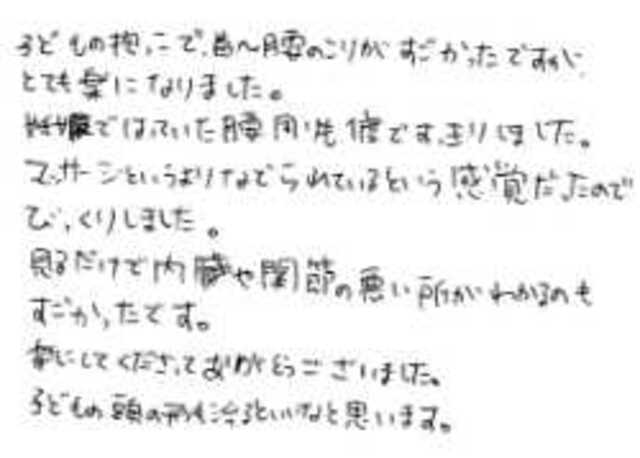 子どもの抱っこで、首～腰のこりがすごかったですが、
とても楽になりました。
ではっていた腰周りも すっきりしました。
マッサージというよりなでられているという感覚だったので
びっくりしました。
見るだけで内臓や関節の悪い所がわかるのも
すごかったです。
楽にしてくださってありがとうございました。
子どもの頭の形も治るといいなと思います。